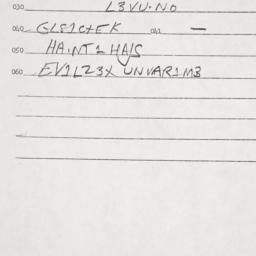 030 L3VU.NO
040 GLS1CtEK 041 —
050 HA.NT1 HAIS
060 EV1LZ3X UNVAR1M3